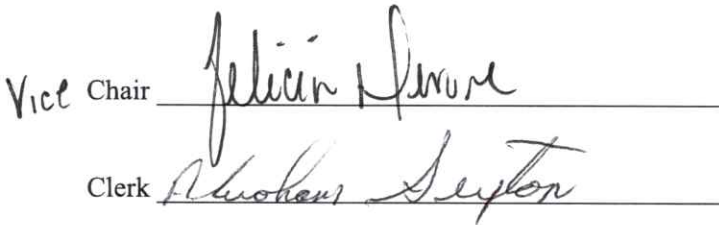 Vice Chair Felicia
Clerk Abraham Sexton